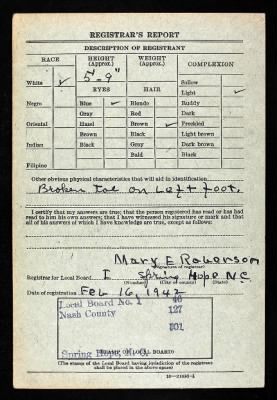 REGISTRAR'S REPORT
DESCRIPTION OF REGISTRANT
RACE HEIGHT (Approx.) WEIGHT (Approx.) COMPLEXION
White ✓ 5-9" Sallow
EYES HAIR Light ✓
Negro Blue ✓ Blonde Ruddy
Gray Red Dark
Oriental Hazel Brown ✓ Freckled
Brown Black Light brown
Indian Black Gray Dark brown
Bald Black
Filipino
Other obvious physical characteristics that will aid in identification
Broken toe on left foot.
I certify that my answers are true; that the person registered has read or has had
read to him his own answers; that I have witnessed his signature or mark and that
all of his answers of which I have knowledge are true, except as follows:
Mary E Roberson
(Signature of registrar)
Registrar for Local Board I Spring Hope N.C.
(Number) (City or county) (State)
Date of registration Feb 16, 1942
Local Board No. 1 46
Nash County 127
001
Spring Hope, N. C.
(STAMP OF LOCAL BOARD)
(The stamp of the Local Board having jurisdiction of the registrant
shall be placed in the above space)